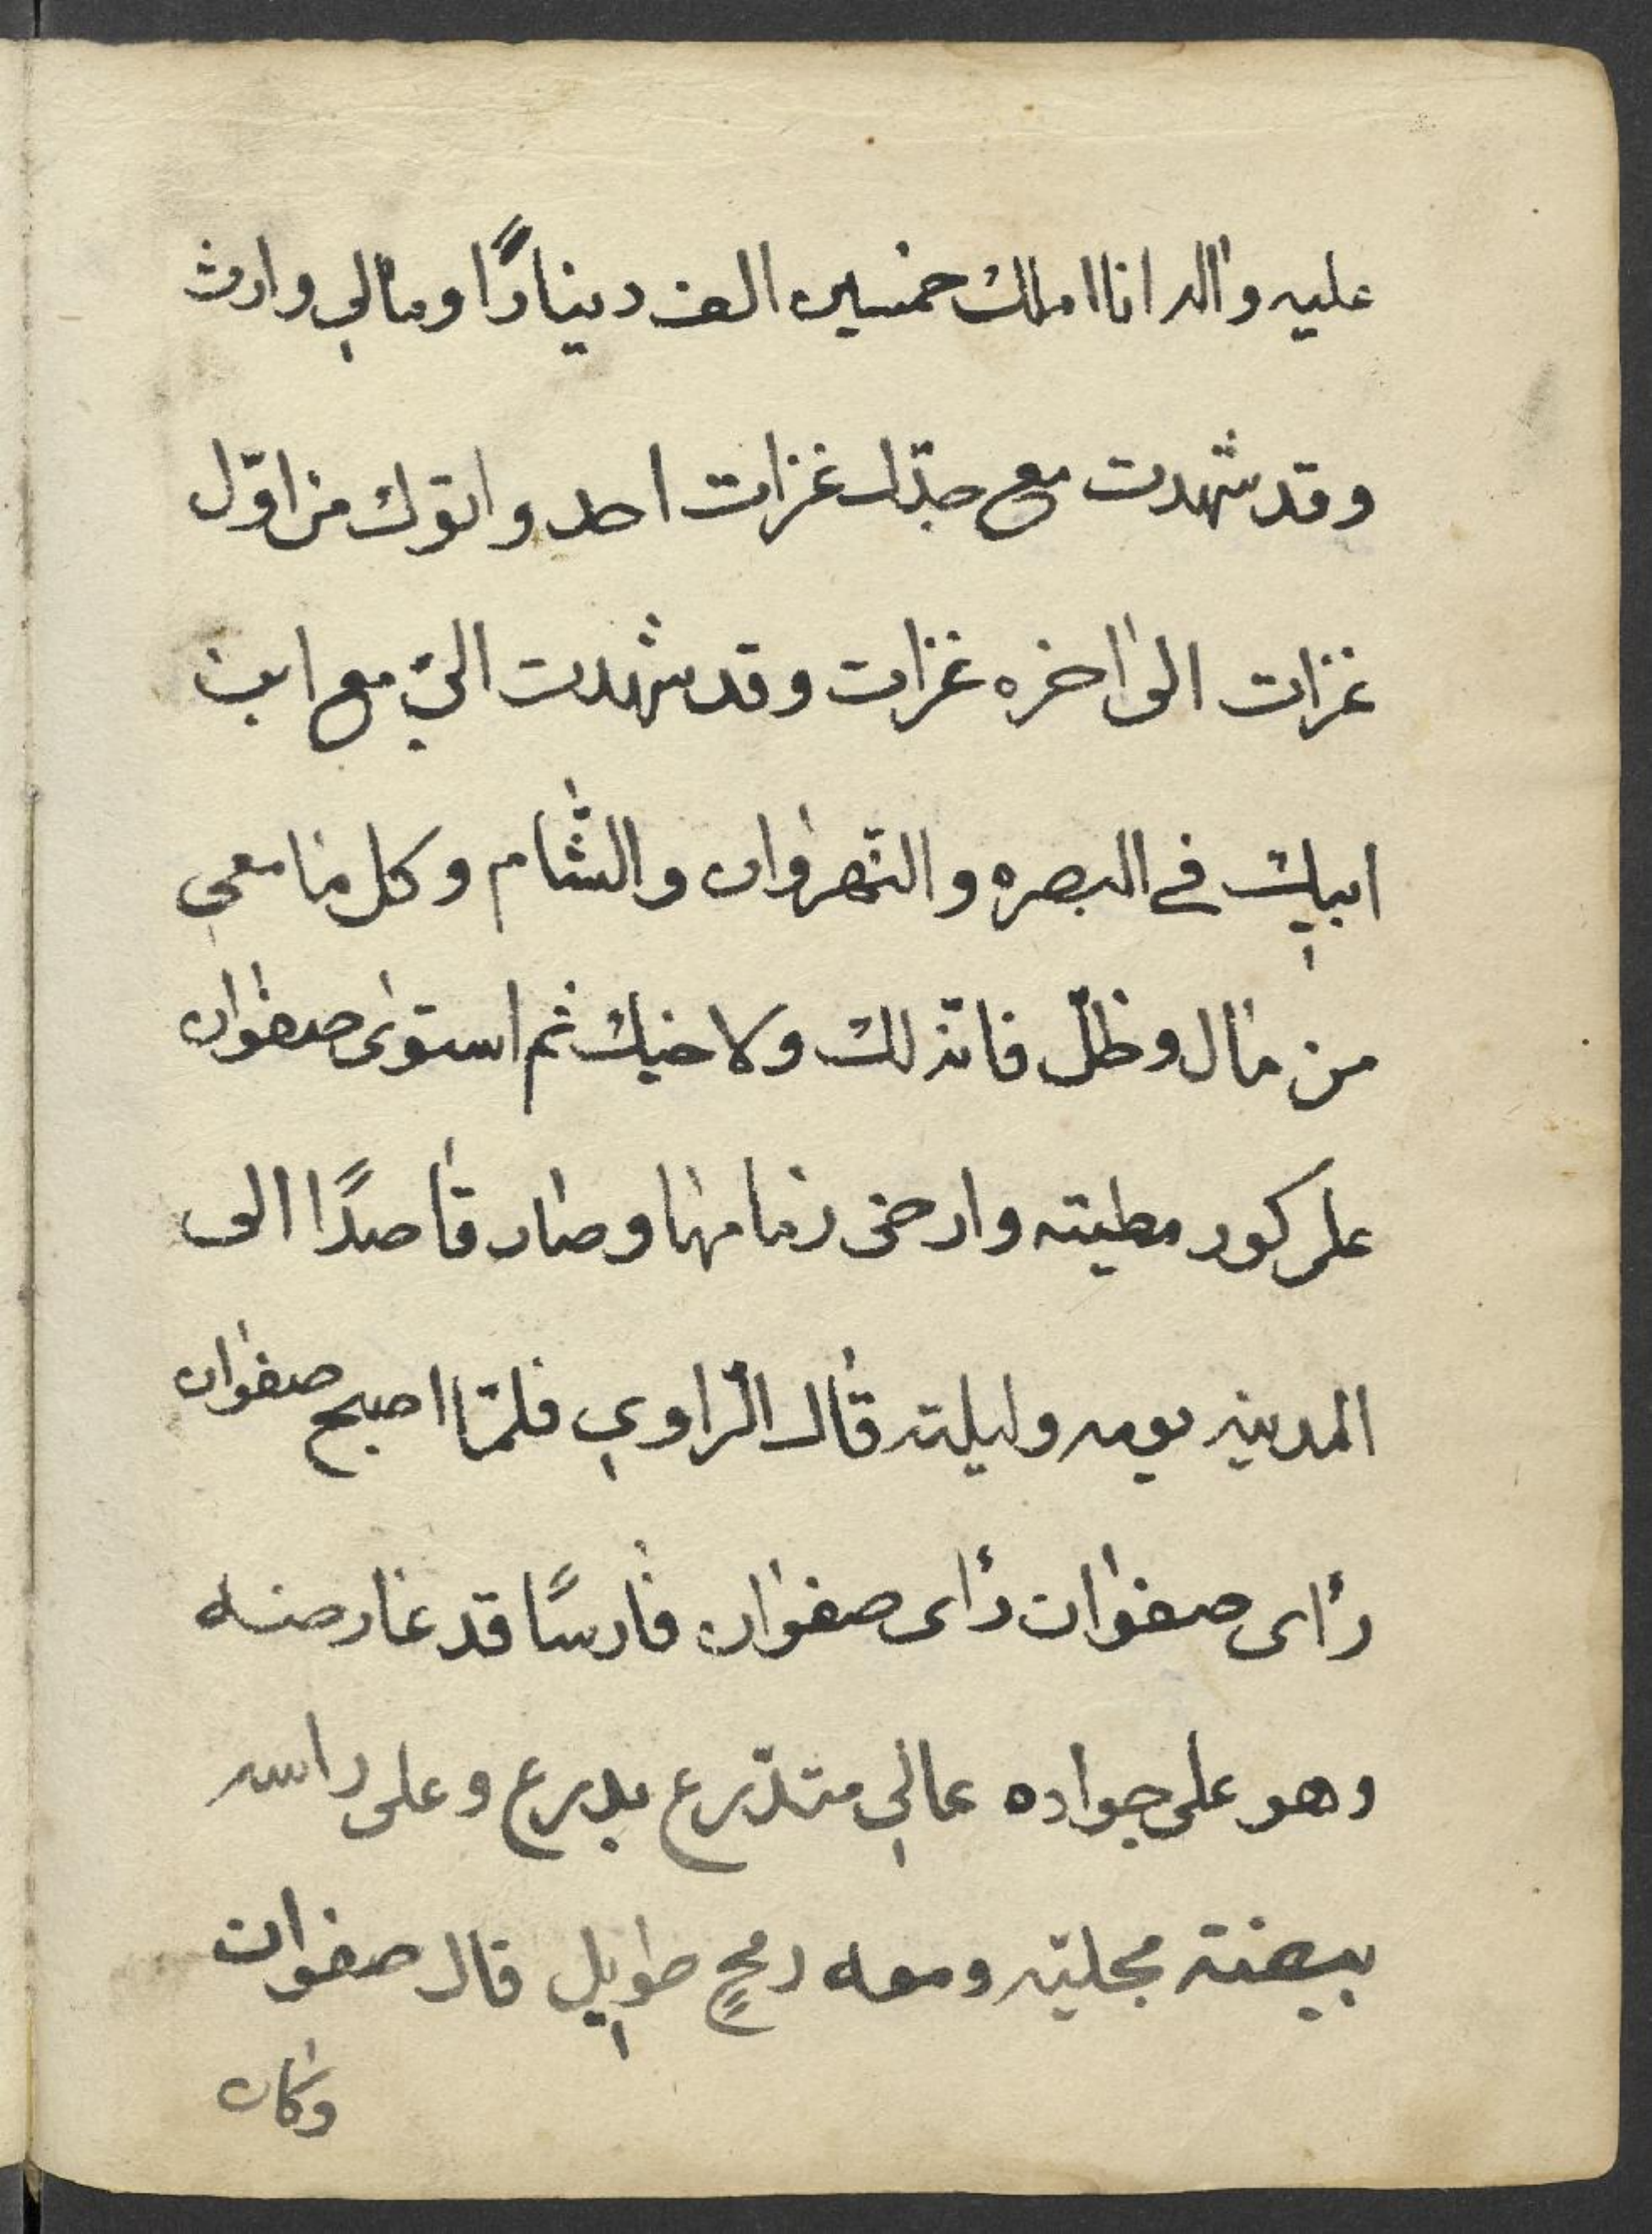 عليه واله انا املك خمسين الف دينارًا ومالي وارث
وقد شهدت مع جدّك غزات احد واتوك من اوّل
غزات الى اخره غزات وقد شهدت اليّ مع ابن
ابيك في البصره والنّهروان والشّام وكل ما معي
من مال وظلّ فانّه لك ولاخيك ثم استوى صفوان
على كور مطيته وارخى زمامها وصار قاصدًا الى
المدينه يومه وليلته قال الرّاوي فلمّا اصبح صفوان
رأى صفوان رأى صفوان فارسًا قد عارضه
وهو على جواده عالي متدّرع بدرع وعلى راسه
بيضة مجليّه ومعه رمحٍ طويل قال صفوان
وكان